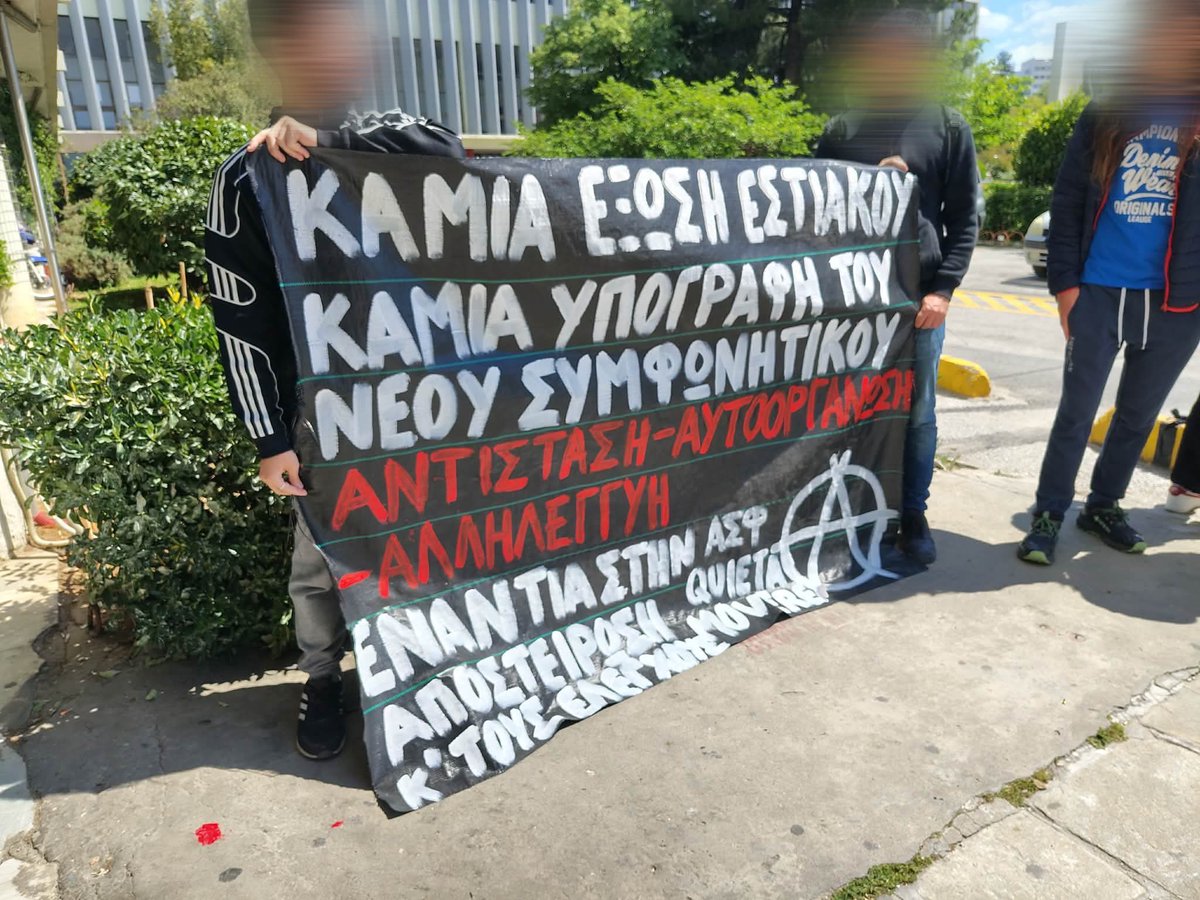 ΚΑΜΙΑ ΕΞΩΣΗ ΕΣΤΙΑΚΟΥ
ΚΑΜΙΑ ΥΠΟΓΡΑΦΗ ΤΟΥ
ΝΕΟΥ ΣΥΜΦΩΝΗΤΙΚΟΥ
ΑΝΤΙΣΤΑΣΗ-ΑΥΤΟΟΡΓΑΝΩΣΗ
-ΑΛΛΗΛΕΓΓΥΗ
ΕΝΑΝΤΙΑ ΣΤΗΝ ΑΣΦ
ΑΠΟΣΤΕΙΡΩΣΗ QUIETA
Κ' ΤΟΥΣ ΕΛΕΓΧΟΥΣ MONTREAL
Denim
Wear
ORIGINALS
LEAGUE